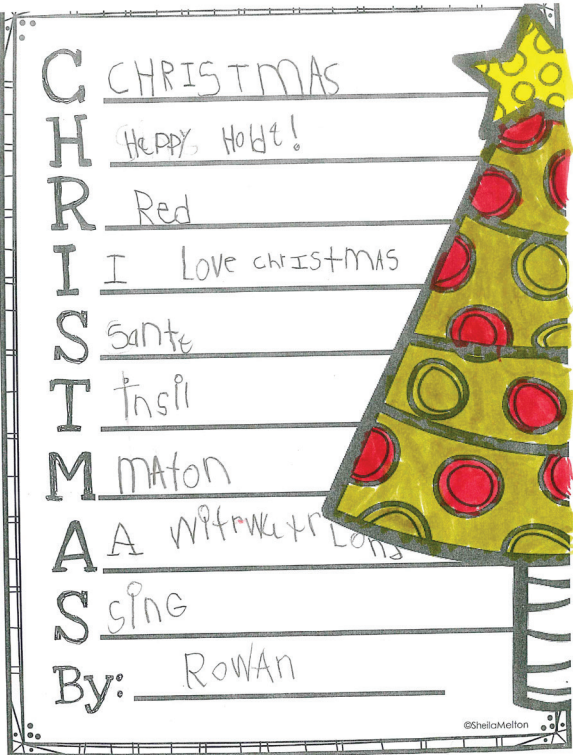 C CHRISTMAS
H Happy Holde!
R Red
I I Love christmas
S Sante
T Tnsil
M maton
A A
S sing
By: Rowan
©SheilaMelton